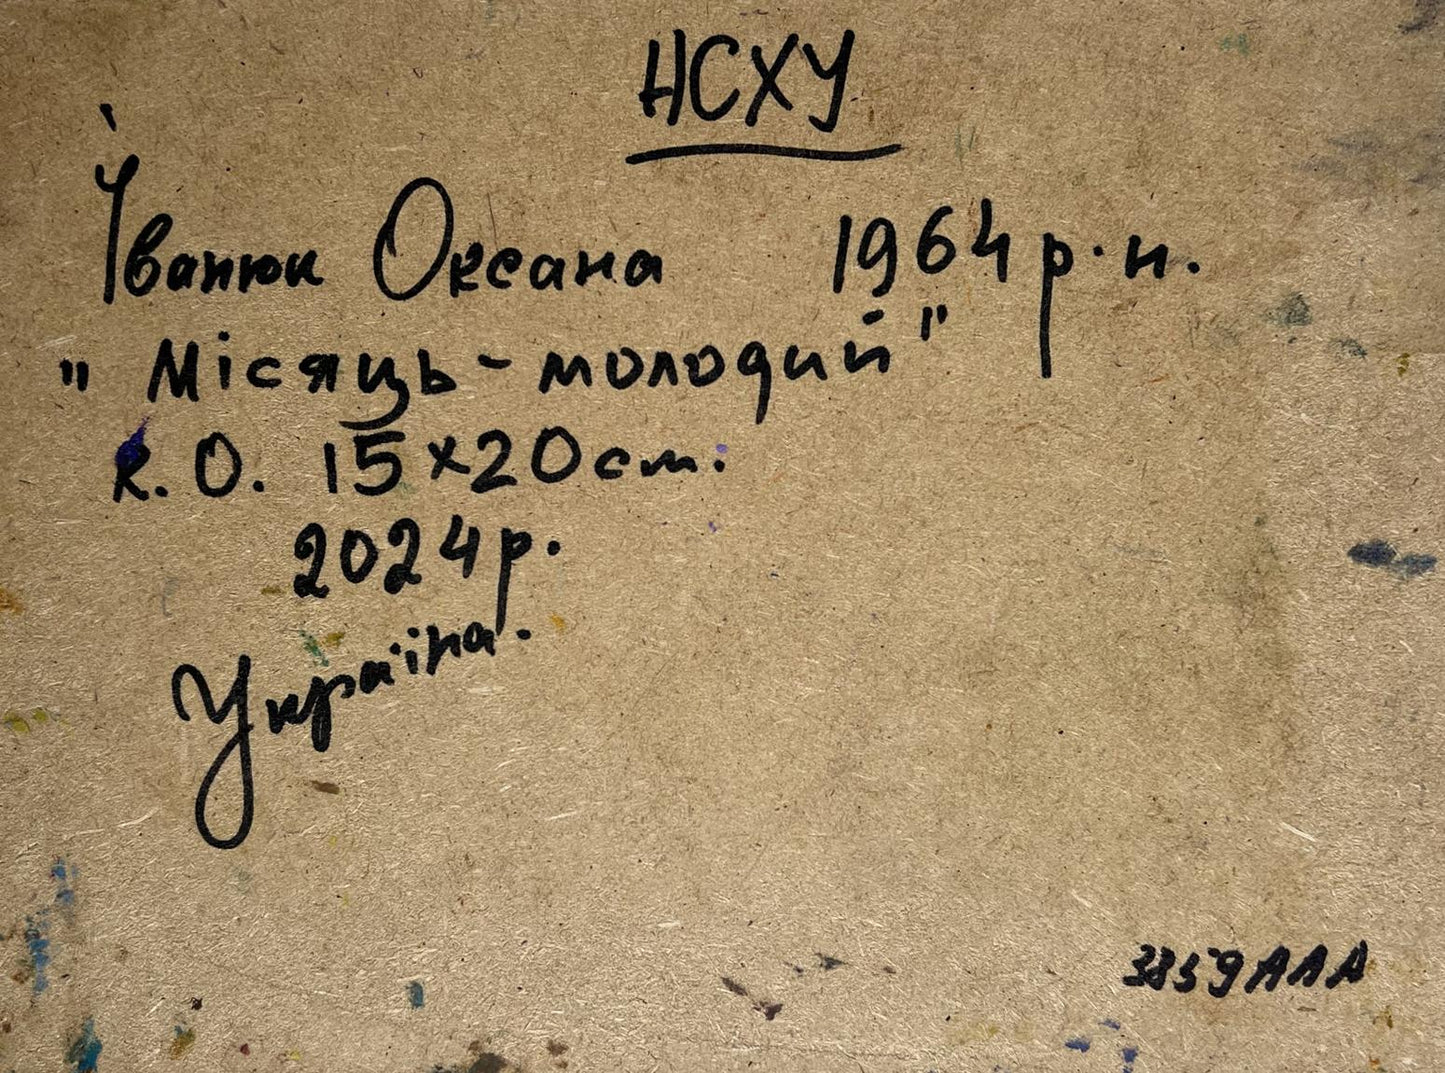 НСХУ
Іванюк Оксана 1964 р. н.
"Місяць-молодий"
к. О. 15х20 см.
2024 р.
Україна.
3859ААА